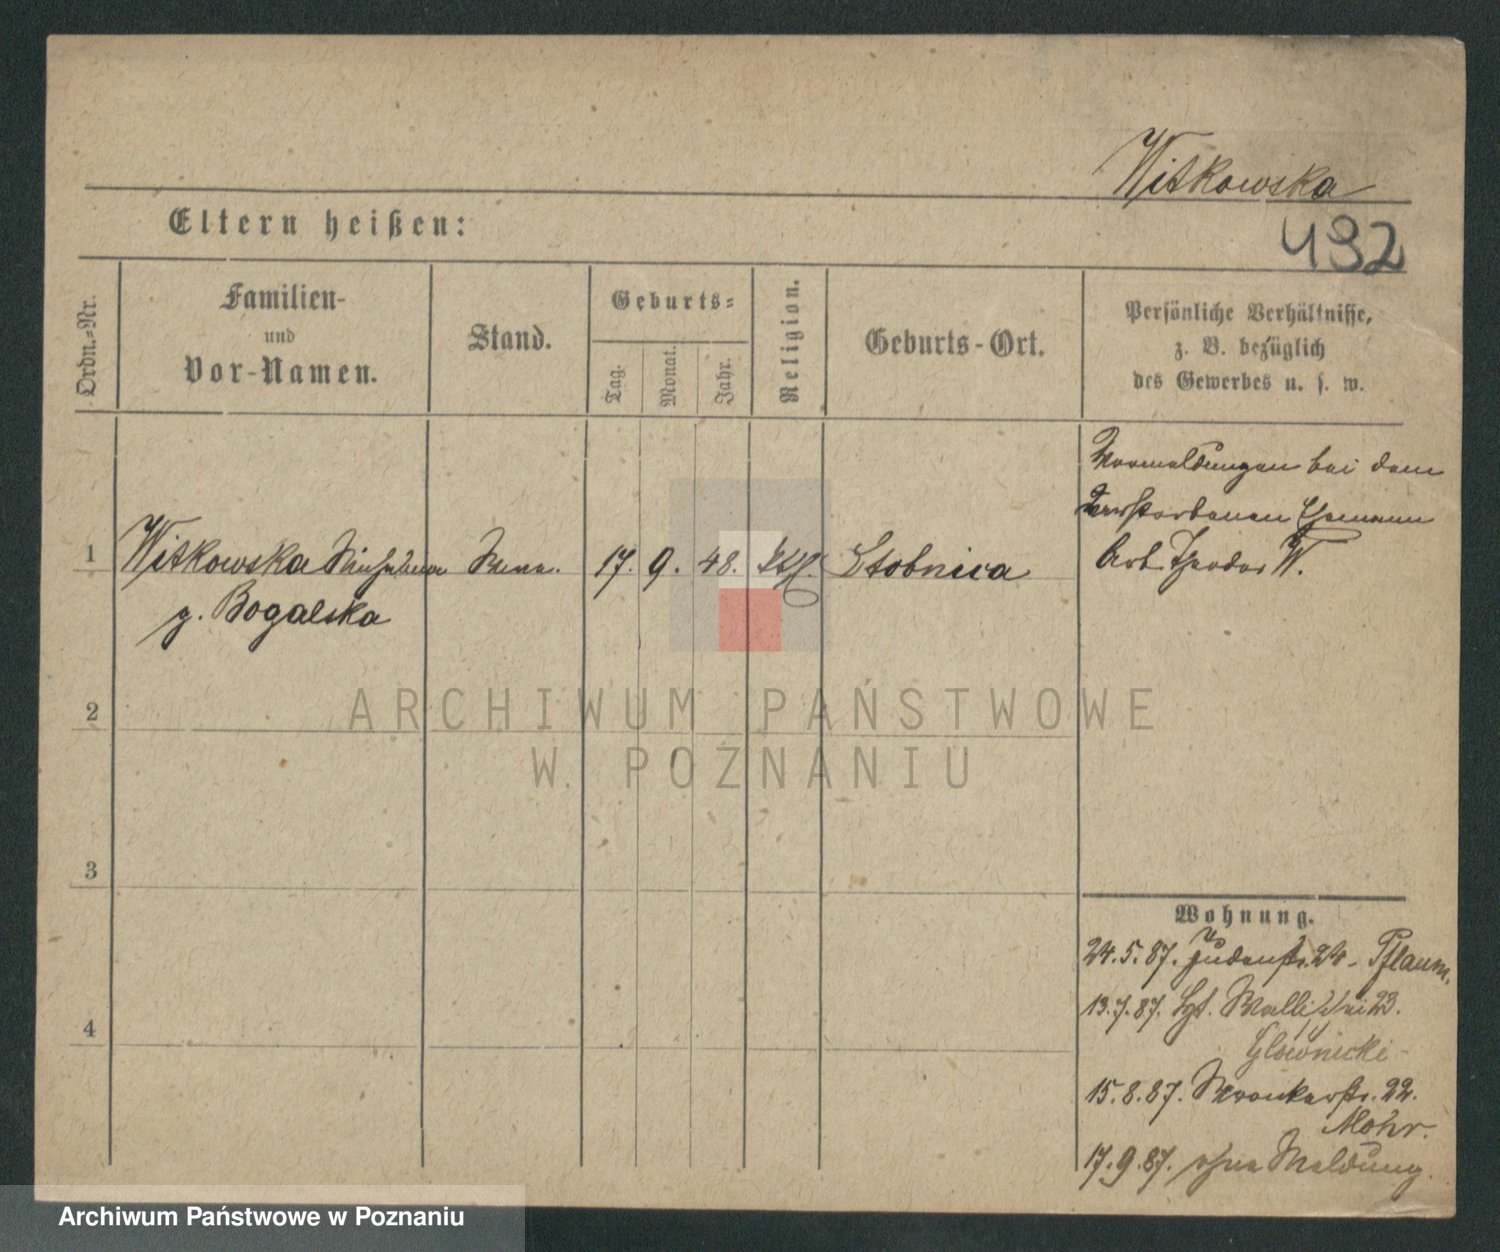 Witkowska
432
Eltern heißen:
Ordn.-Nr.
Familien-
und
Vor-Namen.
Stand.
Geburts-
Tag.
Monat.
Jahr.
Religion.
Geburts-Ort.
Persönliche Verhältnisse,
z. B. bezüglich
des Gewerbes u. s. w.
Vormeldungen bei dem
verstorbenen Ehemann
Arb. Theodor W.
1 Witkowska 17. 9. 48. kth. Stobnica
g. Bogalska
2
3
4
Wohnung.
24.5.87. Judenstr. 24 - Pflaum.
13.7.87. 23.
Glownecki
15.8.87. Wronkerstr. 22.
Mohr.
17.9.87. ohne Meldung.
ARCHIWUM PAŃSTWOWE
W POZNANIU
Archiwum Państwowe w Poznaniu